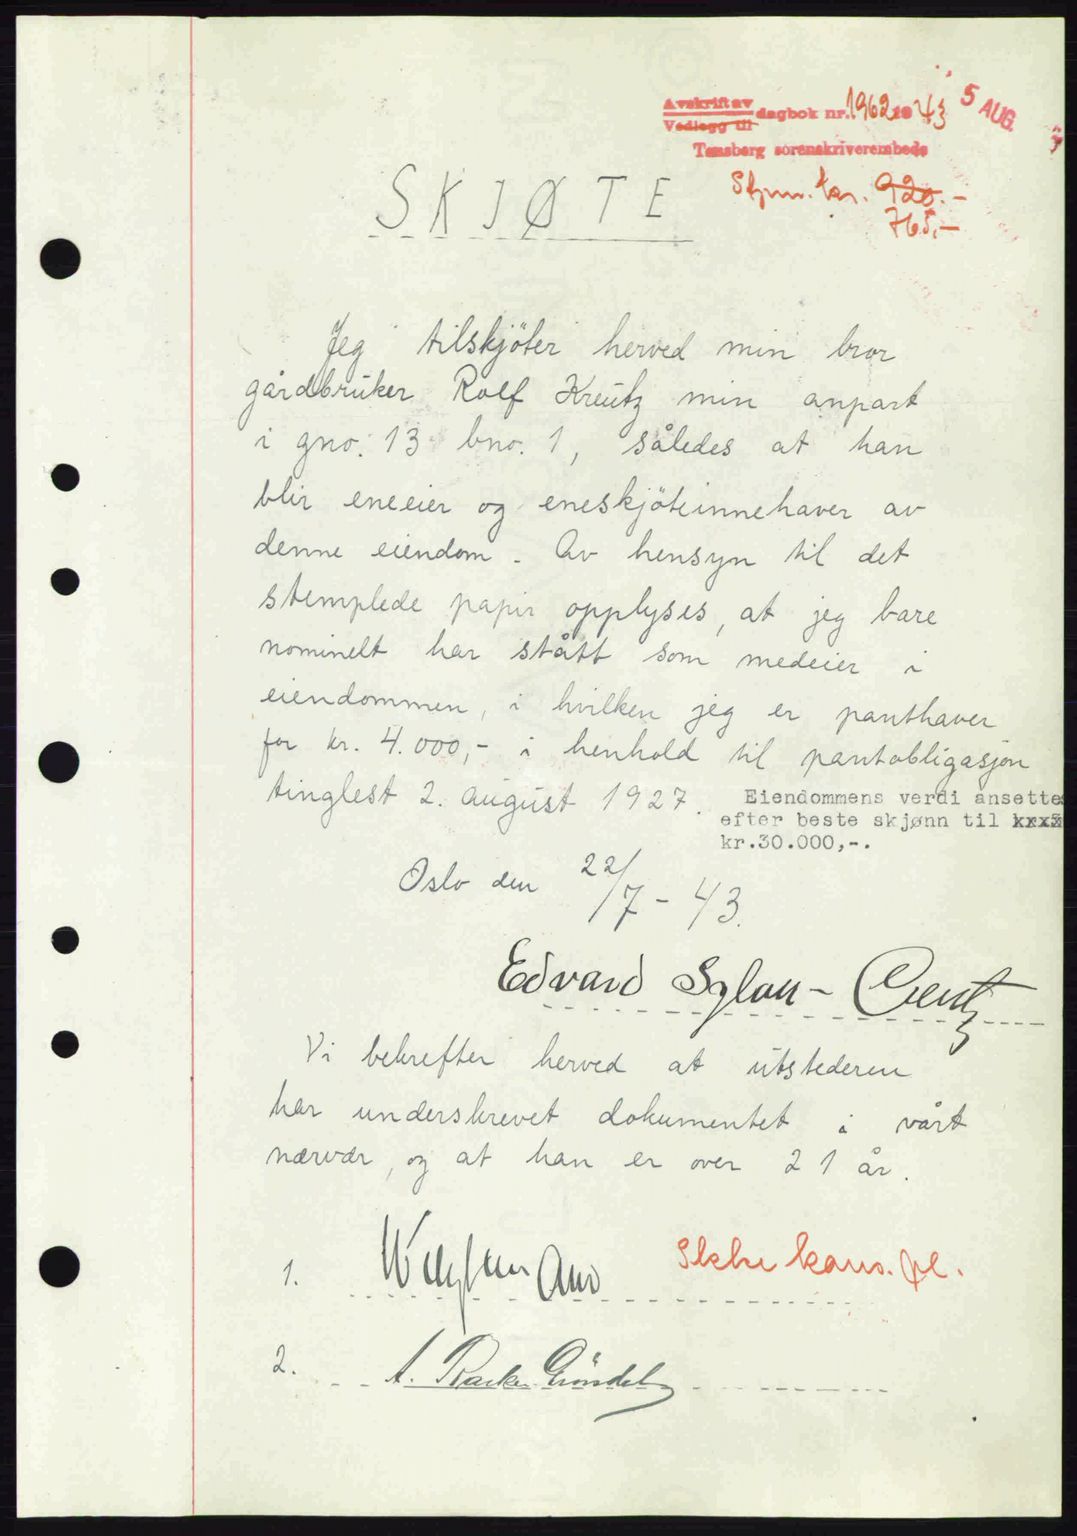 Avskrift av
Vedlegg til dagbok nr. 1962 19 43
5 AUG.
Tønsberg sorenskriverembede
920.-
765,-
SKJØTE
Jeg tilskjöter herved min bror
gårdbruker Rolf Kreutz min anpart
i gno. 13 bno. 1, således at han
blir eneeier og eneskjöteinnehaver av
denne eiendom. Av hensyn til det
stemplede papir opplyses, at jeg bare
nominelt har stått som medeier i
eiendommen, i hvilken jeg er panthaver
for kr. 4.000,- i henhold til pantobligasjon
tinglest 2. august 1927.
Eiendommens verdi ansettes
efter beste skjønn til
kr.30.000,-.
Oslo den 22/7 - 43.
Edvard Sylou-Creutz
Vi bekrefter herved at utstederen
har underskrevet dokumentet i vårt
nærvær, og at han er over 21 år.
1.
Ikke kons. pl.
2. A.